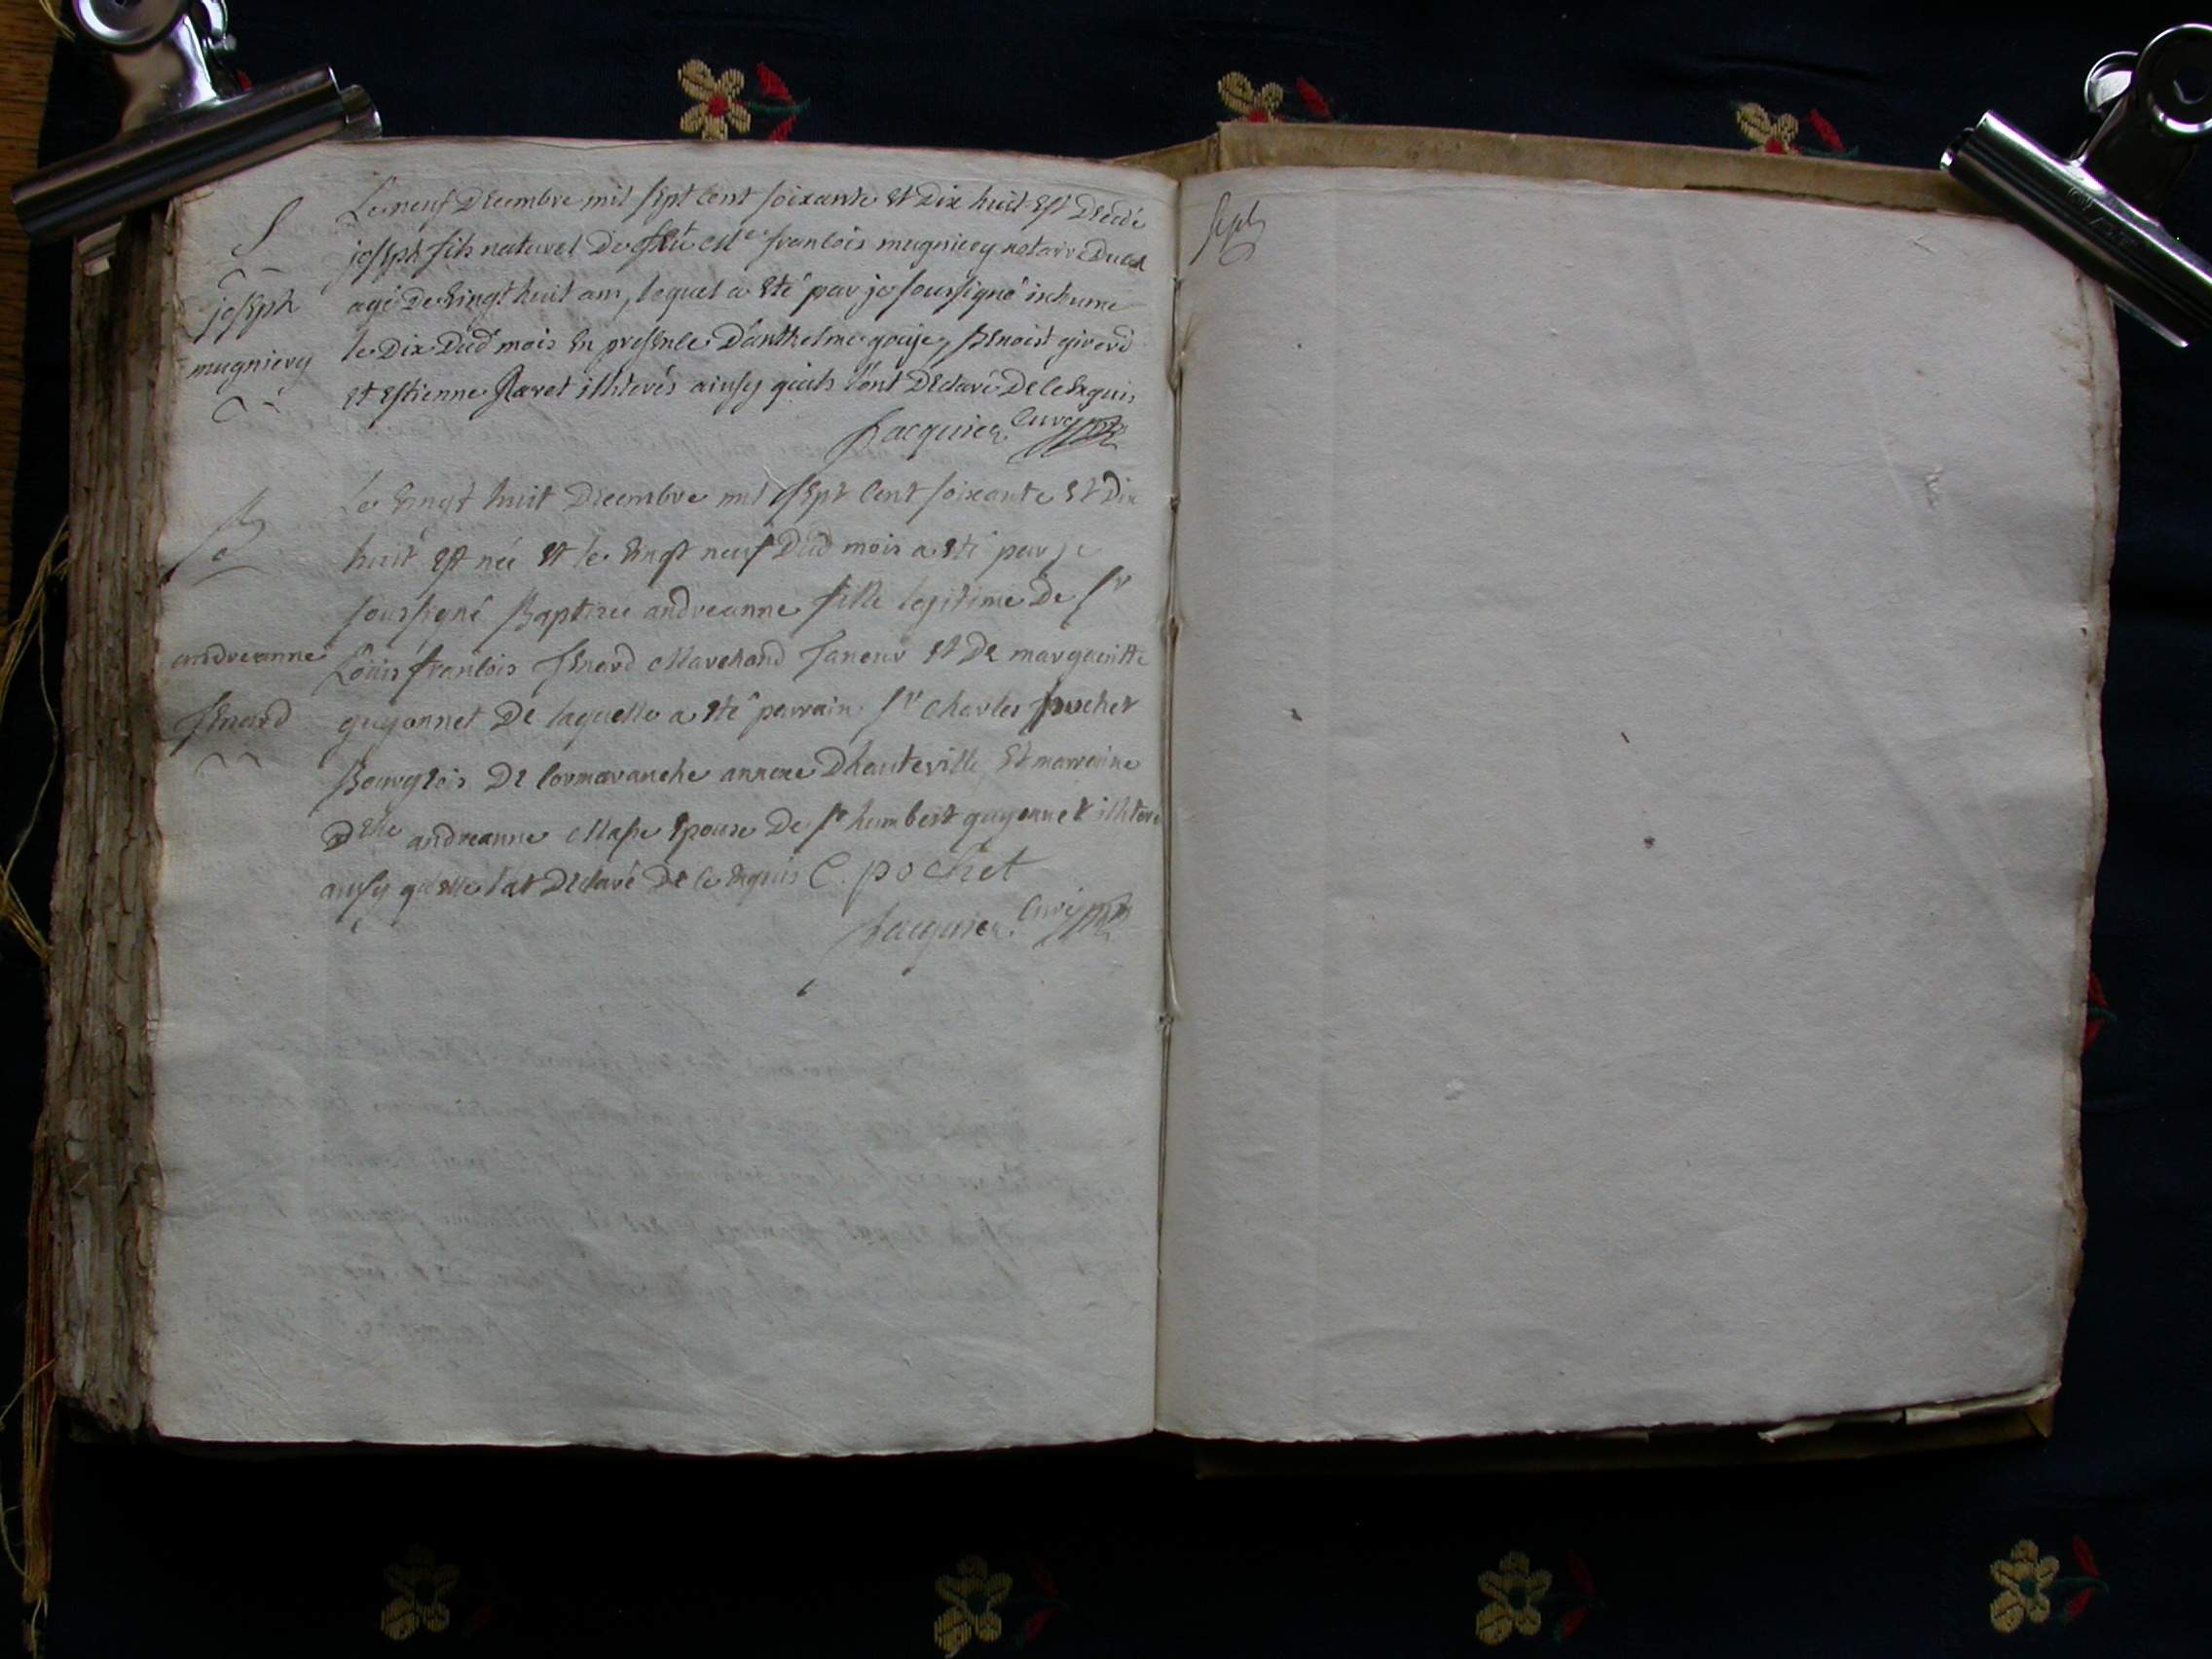 S
joseph
mugniery
Le neuf Decembre mil sept cent soixante et Dix huit est Decedé
joseph fils naturel De feu Me francois mugniery notaire Ducal
agé De vingt huit ans, lequel a eté par je soussigné inhumé
le Dix Dud mois en presence D'anthelme gouje, Benoist girerd
et estienne Ravet illiterés ainsy qu'ils l'ont Declaré De ce enquis
Jacquier Curé
Le vingt huit Decembre mil sept cent soixante et Dix
huit est née et le vingt neuf Dud mois a eté par je
soussigné Baptisée andreanne fille legitime De Sr
andreanne
Louis francois Marchand Taneur et De margueritte
guyonnet De laquelle a eté parrain Sr Charles pochet
Bourgeois De Cormaranche annexe D'hauteville et marraine
Dlle andreanne Masse epouse De Sr humbert guyonnet illiteré
ainsy qu'elle l'at Declaré De ce enquis C. pochet
Jacquier Curé
sept